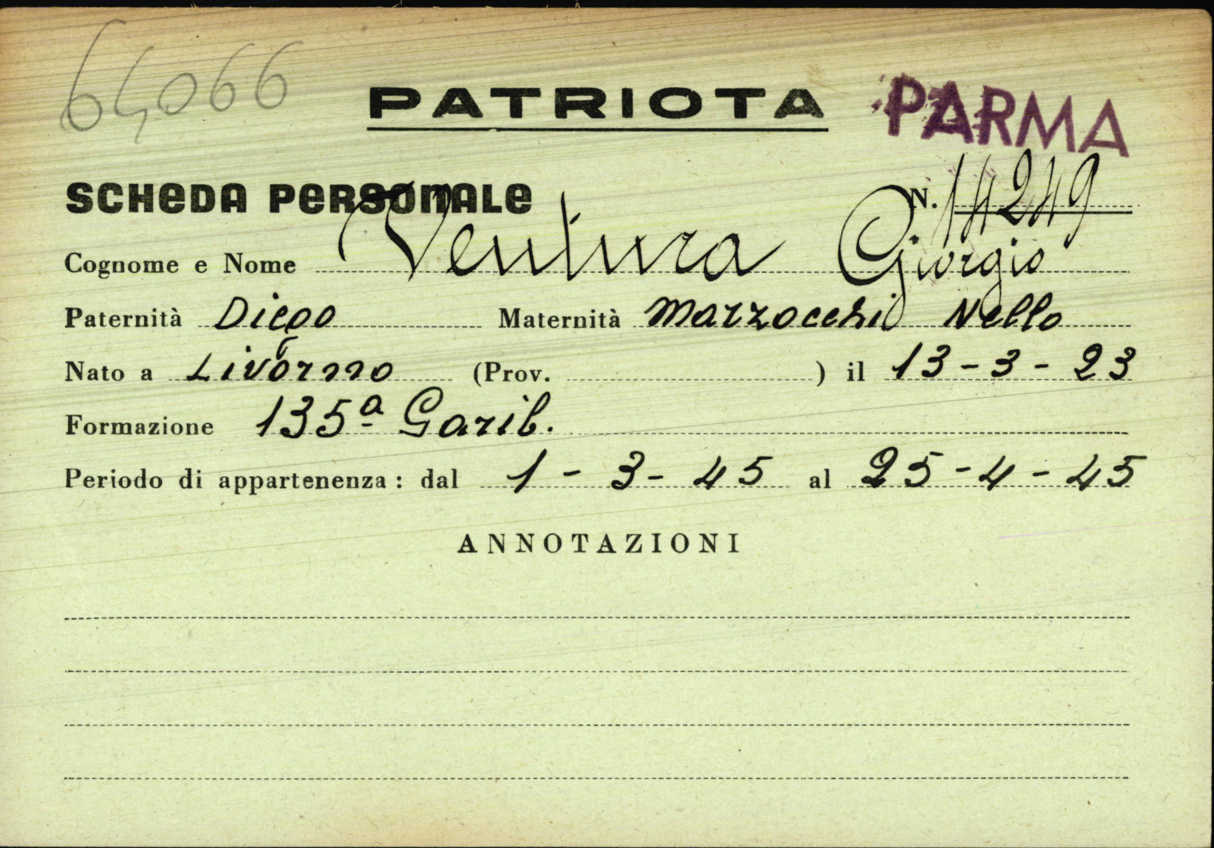 64066
PATRIOTA
PARMA
SCHEDA PERSONALE
N. 14249
Cognome e Nome Ventura Giorgio
Paternità Diego Maternità Mazzocchi Nello
Nato a Livorno (Prov. ) il 13-3-23
Formazione 135ª Garib.
Periodo di appartenenza: dal 1-3-45 al 25-4-45
ANNOTAZIONI